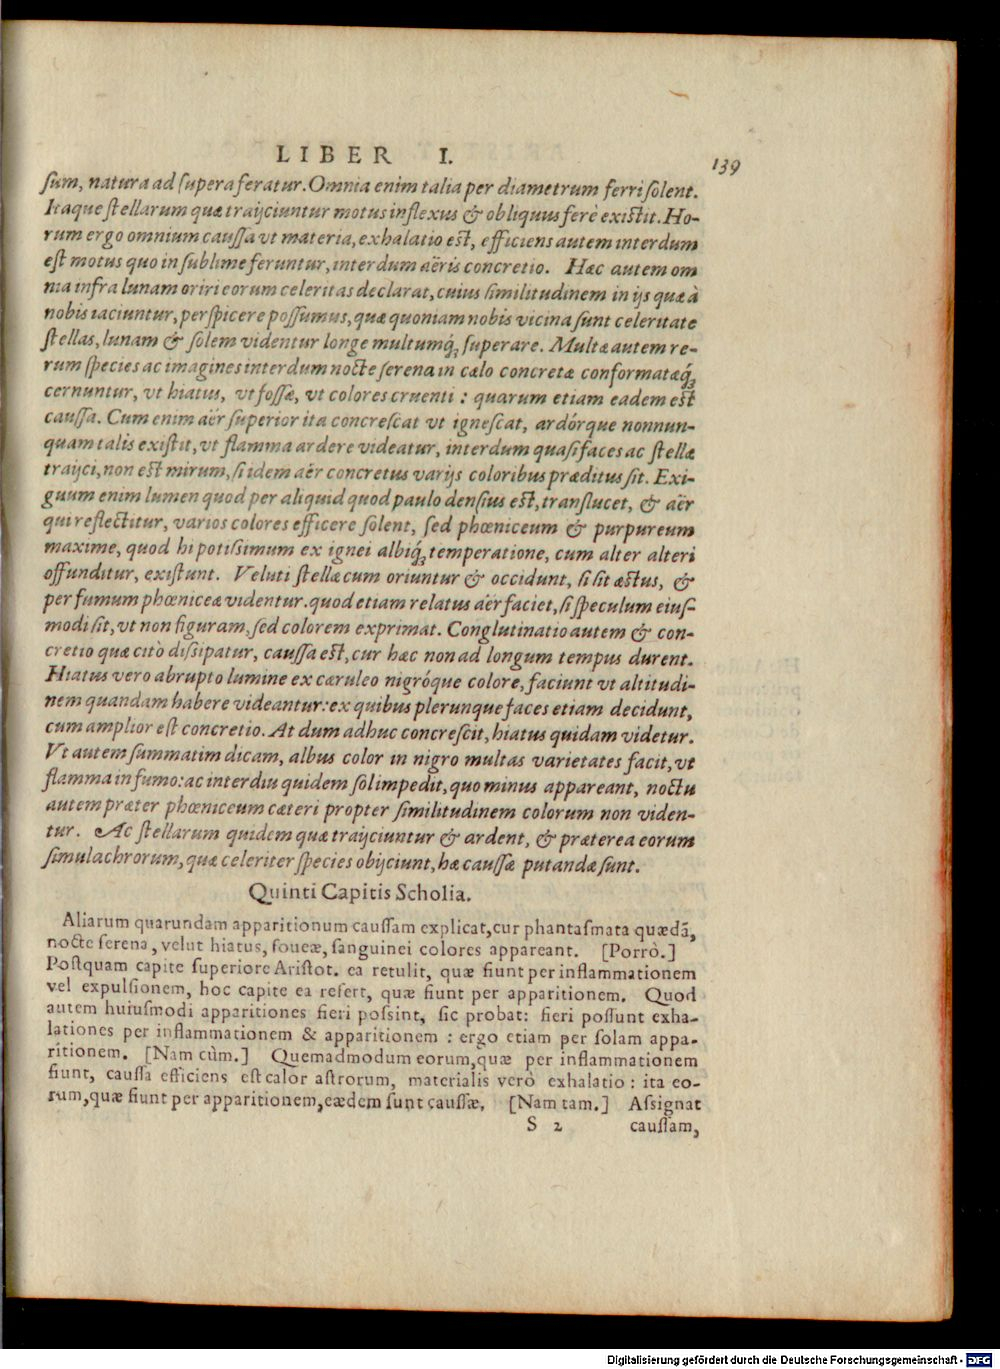 LIBER I. 139
ſum, natura ad ſupera feratur. Omnia enim talia per diametrum ferri ſolent.
Itaque ſtellarum quæ traijciuntur motus inflexus & obliquus ferè exiſtit. Ho-
rum ergo omnium cauſſa vt materia, exhalatio eſt, efficiens autem interdum
eſt motus quo in ſublime feruntur, interdum aëris concretio. Hæc autem om
nia infra lunam oriri eorum celeritas declarat, cuius ſimilitudinem in ijs quæ à
nobis iaciuntur, perſpicere poſſumus, quæ quoniam nobis vicina ſunt celeritate
ſtellas, lunam & ſolem videntur longe multumq́; ſuperare. Multæ autem re-
rum ſpecies ac imagines interdum nocte ſerena in cælo concretæ conformatæq́;
cernuntur, vt hiatus, vt foſſæ, vt colores cruenti : quarum etiam eadem eſt
cauſſa. Cum enim aër ſuperior ita concreſcat vt igneſcat, ardórque nonnun-
quam talis exiſtit, vt flamma ardere videatur, interdum quaſi faces ac ſtellæ
traijci, non eſt mirum, ſi idem aër concretus varijs coloribus præditus ſit. Exi-
guum enim lumen quod per aliquid quod paulo denſius eſt, tranſlucet, & aër
qui reflectitur, varios colores efficere ſolent, ſed phœniceum & purpureum
maxime, quod hi potiſsimum ex ignei albiq́; temperatione, cum alter alteri
offunditur, exiſtunt. Veluti ſtellæ cum oriuntur & occidunt, ſi ſit æſtus, &
per fumum phœniceæ videntur. quod etiam relatus aër faciet, ſi ſpeculum eiuſ-
modi ſit, vt non figuram, ſed colorem exprimat. Conglutinatio autem & con-
cretio quæ citò diſsipatur, cauſſa eſt, cur hæc non ad longum tempus durent.
Hiatus vero abrupto lumine ex cæruleo nigróque colore, faciunt vt altitudi-
nem quandam habere videantur: ex quibus plerunque faces etiam decidunt,
cum amplior eſt concretio. At dum adhuc concreſcit, hiatus quidam videtur.
Vt autem ſummatim dicam, albus color in nigro multas varietates facit, vt
flamma in fumo: ac interdiu quidem ſol impedit, quo minus appareant, noctu
autem præter phœniceum cæteri propter ſimilitudinem colorum non viden-
tur. Ac ſtellarum quidem quæ traijciuntur & ardent, & præterea eorum
ſimulachrorum, quæ celeriter ſpecies obijciunt, hæ cauſſæ putandæ ſunt.
Quinti Capitis Scholia.
Aliarum quarundam apparitionum cauſſam explicat, cur phantaſmata quædā,
nocte ſerena, velut hiatus, foueæ, ſanguinei colores appareant. [Porrò.]
Poſtquam capite ſuperiore Ariſtot. ea retulit, quæ fiunt per inflammationem
vel expulſionem, hoc capite ea refert, quæ fiunt per apparitionem. Quod
autem huiuſmodi apparitiones fieri poſsint, ſic probat: fieri poſſunt exha-
lationes per inflammationem & apparitionem : ergo etiam per ſolam appa-
ritionem. [Nam cùm.] Quemadmodum eorum, quæ per inflammationem
fiunt, cauſſa efficiens eſt calor aſtrorum, materialis verò exhalatio : ita eo-
rum, quæ fiunt per apparitionem, eædem ſunt cauſſæ. [Nam tam.] Aſsignat
S 2 cauſſam,
Digitalisierung gefördert durch die Deutsche Forschungsgemeinschaft - DFG